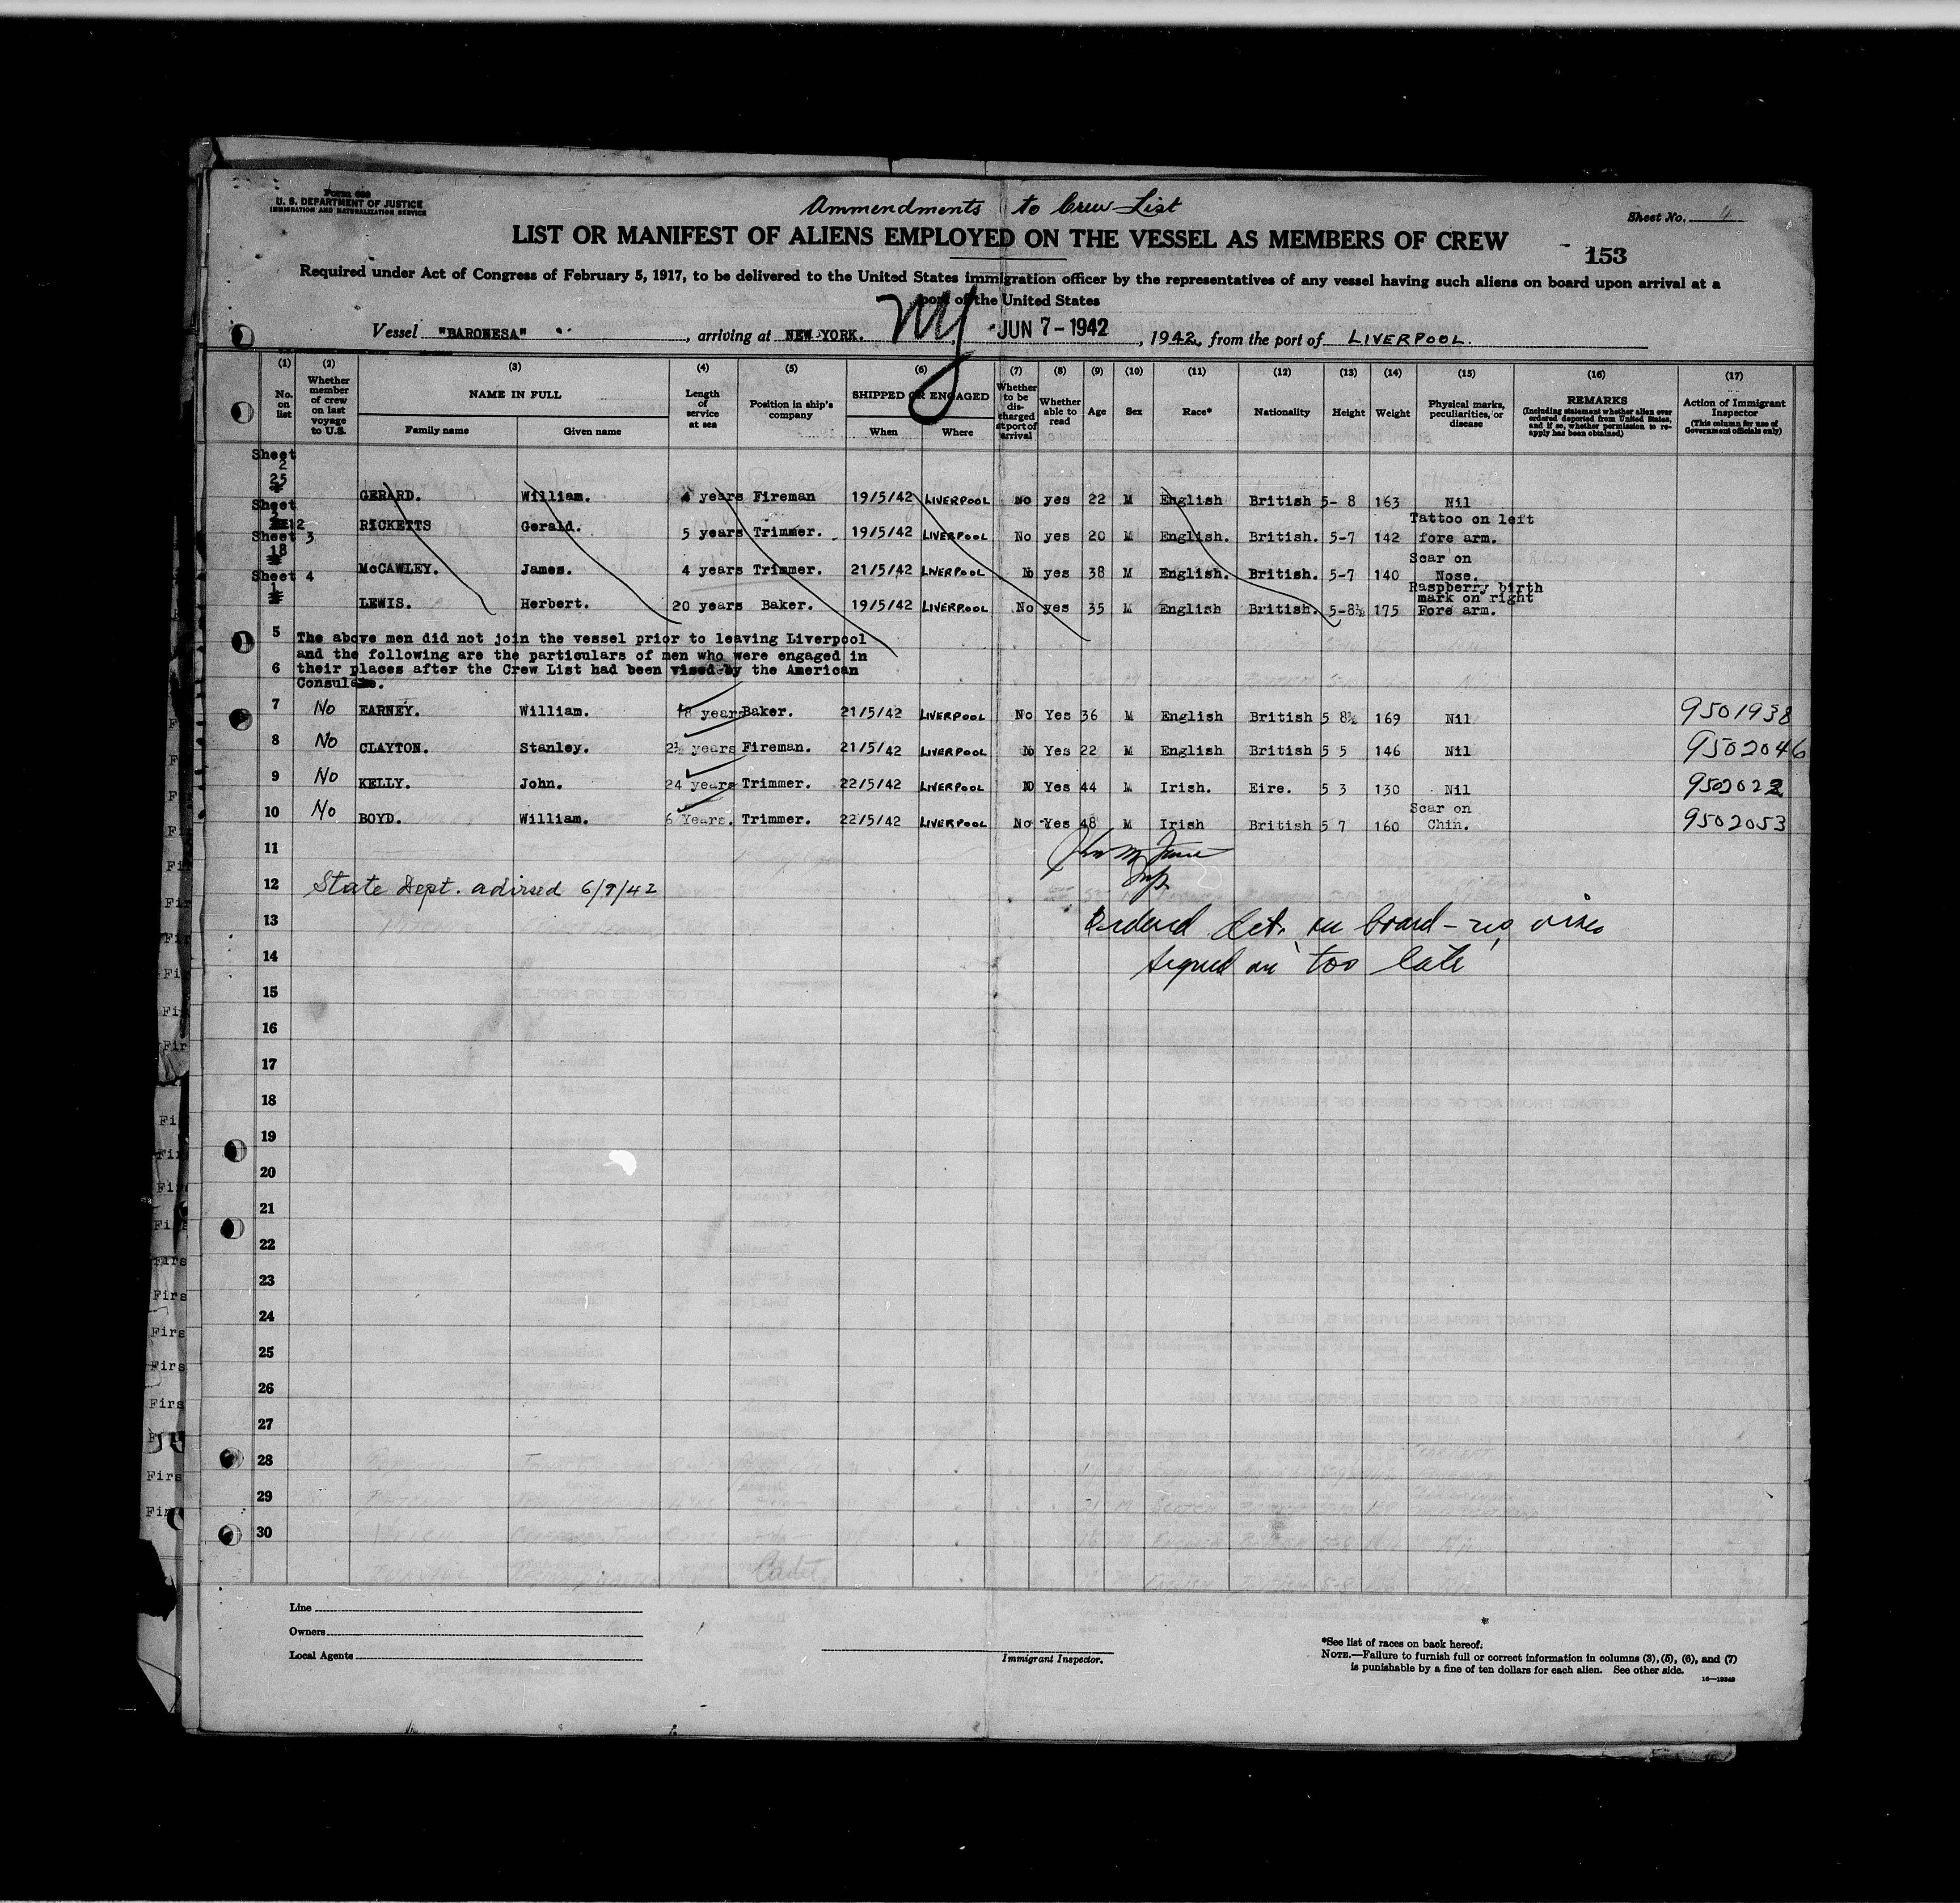 Form 680
U. S. DEPARTMENT OF JUSTICE
IMMIGRATION AND NATURALIZATION SERVICE
Ammendments to Crew List
Sheet No. 4
LIST OR MANIFEST OF ALIENS EMPLOYED ON THE VESSEL AS MEMBERS OF CREW
153
Required under Act of Congress of February 5, 1917, to be delivered to the United States immigration officer by the representatives of any vessel having such aliens on board upon arrival at a
port of the United States
NY
Vessel "BARONESA", arriving at NEW YORK. JUN 7-1942, 1942, from the port of LIVERPOOL.
(1) (2) (3) (4) (5) (6) (7) (8) (9) (10) (11) (12) (13) (14) (15) (16) (17)
No. on list
Whether member of crew on last voyage to U.S.
NAME IN FULL
Family name Given name
Length of service at sea
Position in ship's company
SHIPPED OR ENGAGED
When Where
Whether to be discharged at port of arrival
Whether able to read
Age
Sex
Race*
Nationality
Height
Weight
Physical marks, peculiarities, or disease
REMARKS
(Including statement whether alien ever ordered deported from United States, and if so, whether permission to re-apply has been obtained)
Action of Immigrant Inspector
(This column for use of Government officials only)
Sheet 2
25 GERARD. William. 4 years Fireman 19/5/42 LIVERPOOL No yes 22 M English British 5- 8 163 Nil
Sheet
12 RICKETTS Gerald. 5 years Trimmer. 19/5/42 LIVERPOOL No yes 20 M English. British. 5-7 142 Tattoo on left fore arm.
Sheet 3
18 McCAWLEY. James. 4 years Trimmer. 21/5/42 LIVERPOOL No yes 38 M English. British. 5-7 140 Scar on Nose.
Sheet 4
1 LEWIS. Herbert. 20 years Baker. 19/5/42 LIVERPOOL No yes 35 M English British. 5-8½ 175 Raspberry birth mark on right Fore arm.
5 The above men did not join the vessel prior to leaving Liverpool
and the following are the particulars of men who were engaged in
6 their places after the Crew List had been vised by the American
Consul.
7 No EARNEY. William. 18 years Baker. 21/5/42 LIVERPOOL No Yes 36 M English British 5 8½ 169 Nil 9501938
8 No CLAYTON. Stanley. 2½ years Fireman. 21/5/42 LIVERPOOL No Yes 22 M English British 5 5 146 Nil 9502046
9 No KELLY. John. 24 years Trimmer. 22/5/42 LIVERPOOL No Yes 44 M Irish. Eire. 5 3 130 Nil 9502022
10 No BOYD. William. 6 Years. Trimmer. 22/5/42 LIVERPOOL No Yes 48 M Irish British 5 7 160 Scar on Chin. 9502053
11
Insp.
12 State Dept. advised 6/9/42
13 Ordered det. on board - no visas
14 signed on "too late"
15
16
17
18
19
20
21
22
23
24
25
26
27
28
29
30
Line
Owners
Local Agents
Immigrant Inspector.
*See list of races on back hereof.
NOTE.—Failure to furnish full or correct information in columns (3), (5), (6), and (7)
is punishable by a fine of ten dollars for each alien. See other side.